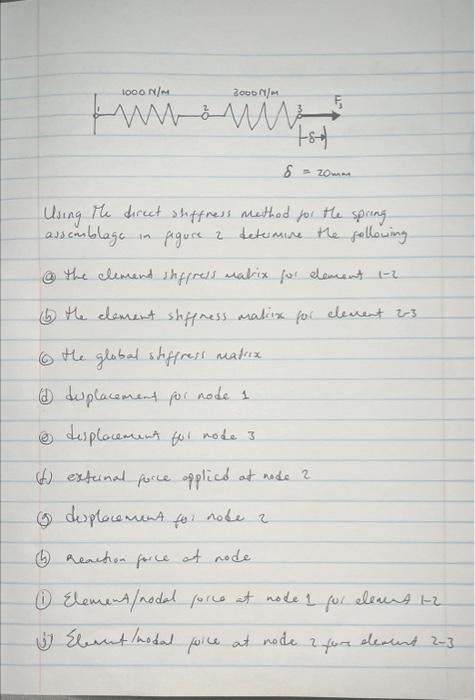 1000 N/M 3000 N/M
1 2 3 F3
δ
δ = 20mm
Using the direct stiffness method for the spring
assemblage in figure 2 determine the following
(a) the element stiffness matrix for element 1-2
(b) the element stiffness matrix for element 2-3
(c) the global stiffness matrix
(d) displacement for node 1
(e) displacement for node 3
(f) external force applied at node 2
(g) displacement for node 2
(h) Reaction force at node
(i) Element/nodal force at node 1 for element 1-2
(j) Element/nodal force at node 2 for element 2-3